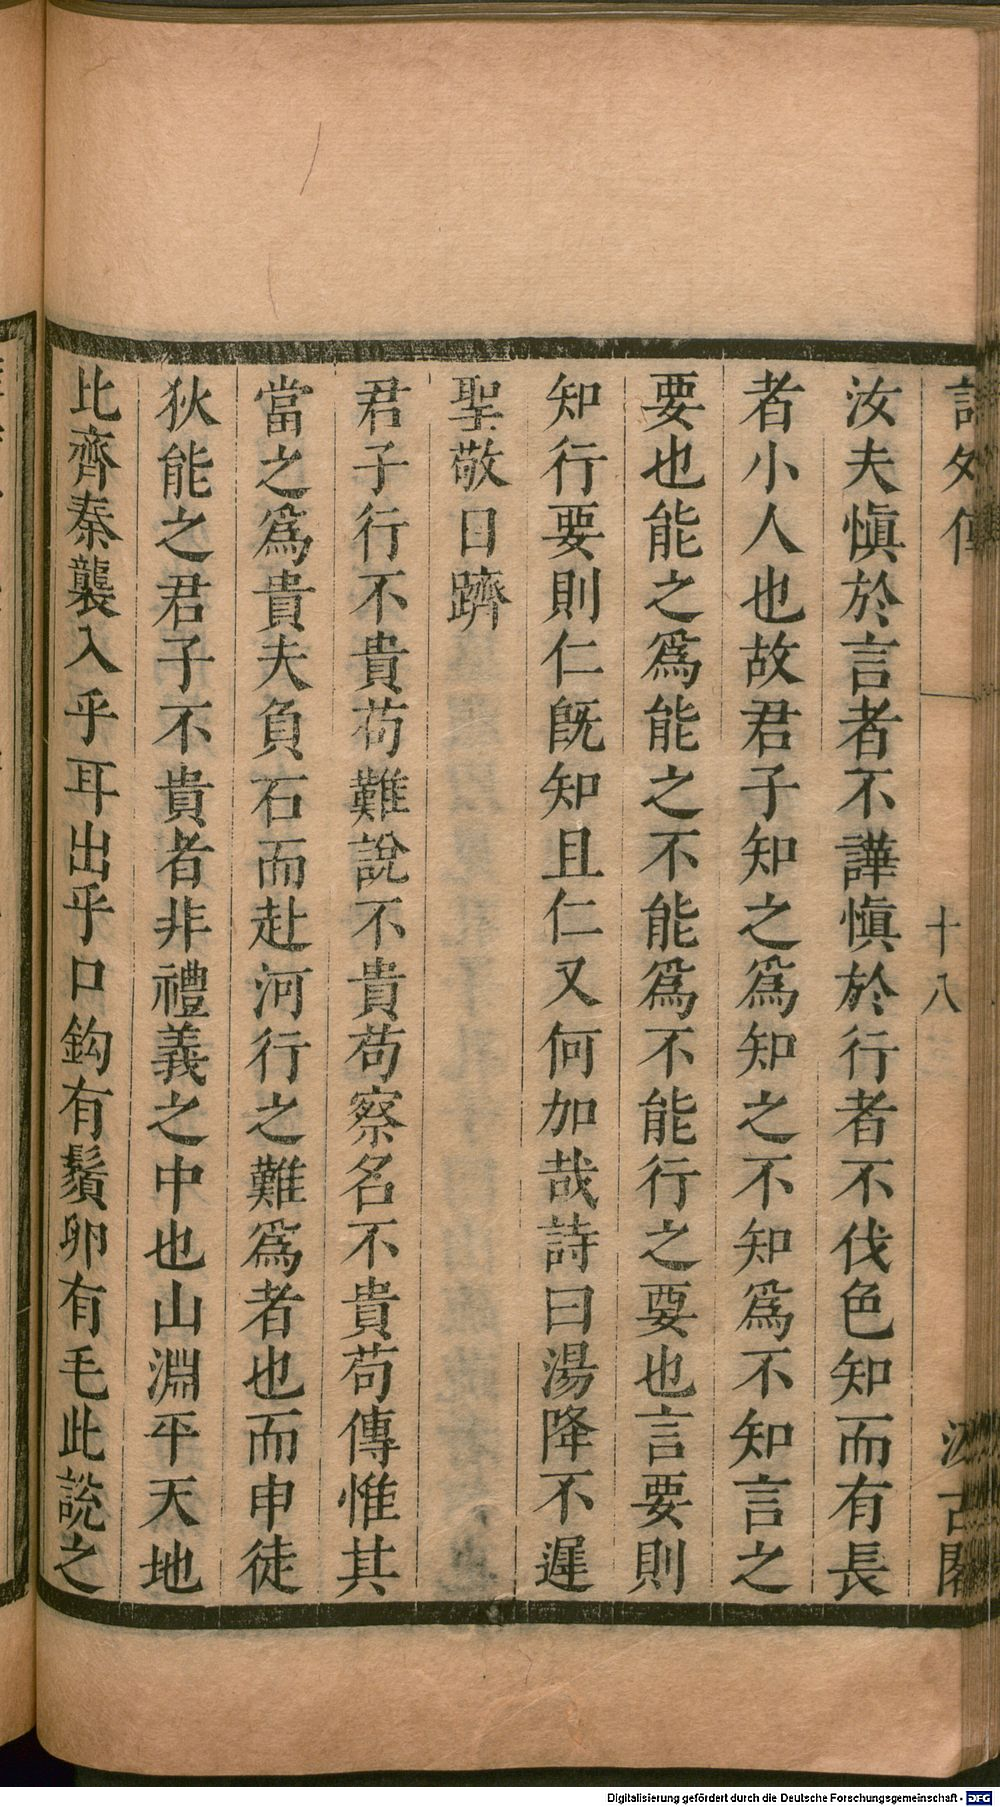 汝夫慎於言者不譁慎於行者不伐色知而有長
者小人也故君子知之為知之不知為不知言之
要也能之為能之不能為不能行之要也言要則
知行要則仁既知且仁又何加哉詩曰湯降不遲
聖敬日躋
君子行不貴苟難說不貴苟察名不貴苟傳惟其
當之為貴夫負石而赴河行之難為者也而申徒
狄能之君子不貴者非禮義之中也山淵平天地
比齊秦襲入乎耳出乎口鈎有鬚卵有毛此說之
十八
Digitalisierung gefördert durch die Deutsche Forschungsgemeinschaft - DFG